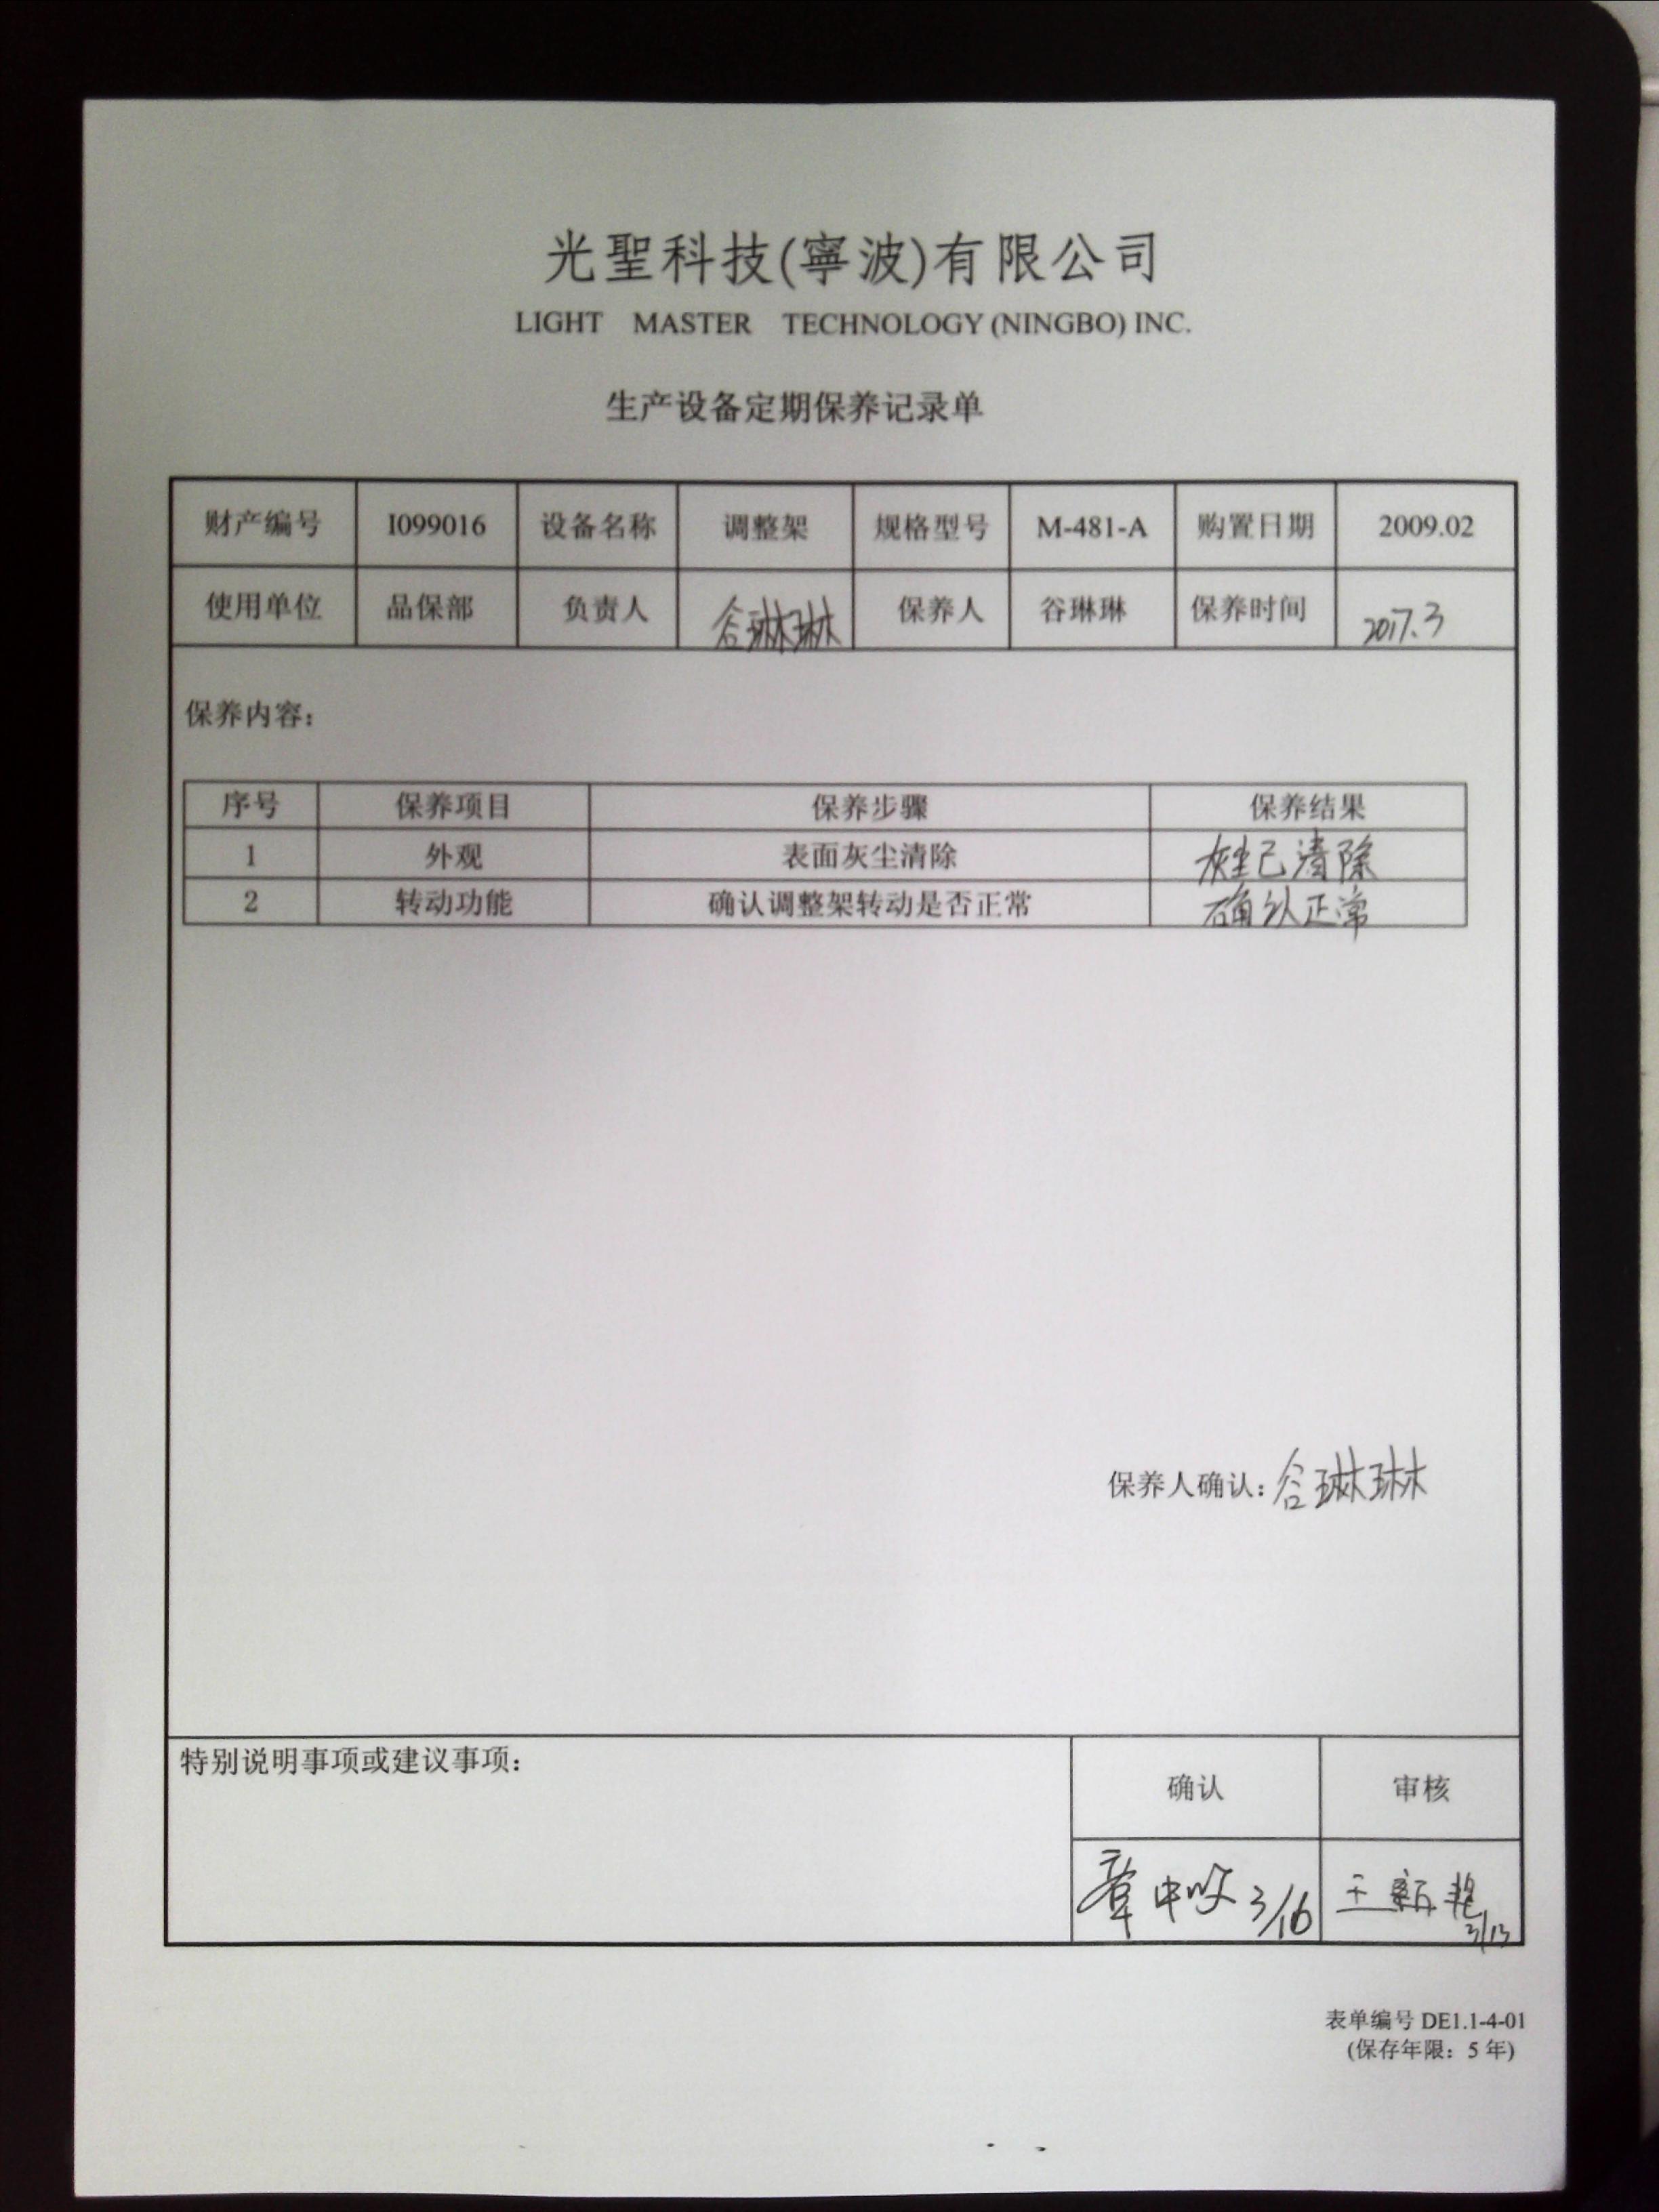 光聖科技(寧波)有限公司
LIGHT MASTER TECHNOLOGY (NINGBO) INC.
生产设备定期保养记录单
财产编号 I099016 设备名称 调整架 规格型号 M-481-A 购置日期 2009.02
使用单位 品保部 负责人 谷琳琳 保养人 谷琳琳 保养时间 2017.3
保养内容：
序号 保养项目 保养步骤 保养结果
1 外观 表面灰尘清除 灰尘已清除
2 转动功能 确认调整架转动是否正常 确认正常
保养人确认：谷琳琳
特别说明事项或建议事项：
确认 审核
章中 3/16 王新 3/13
表单编号 DE1.1-4-01
(保存年限：5 年)